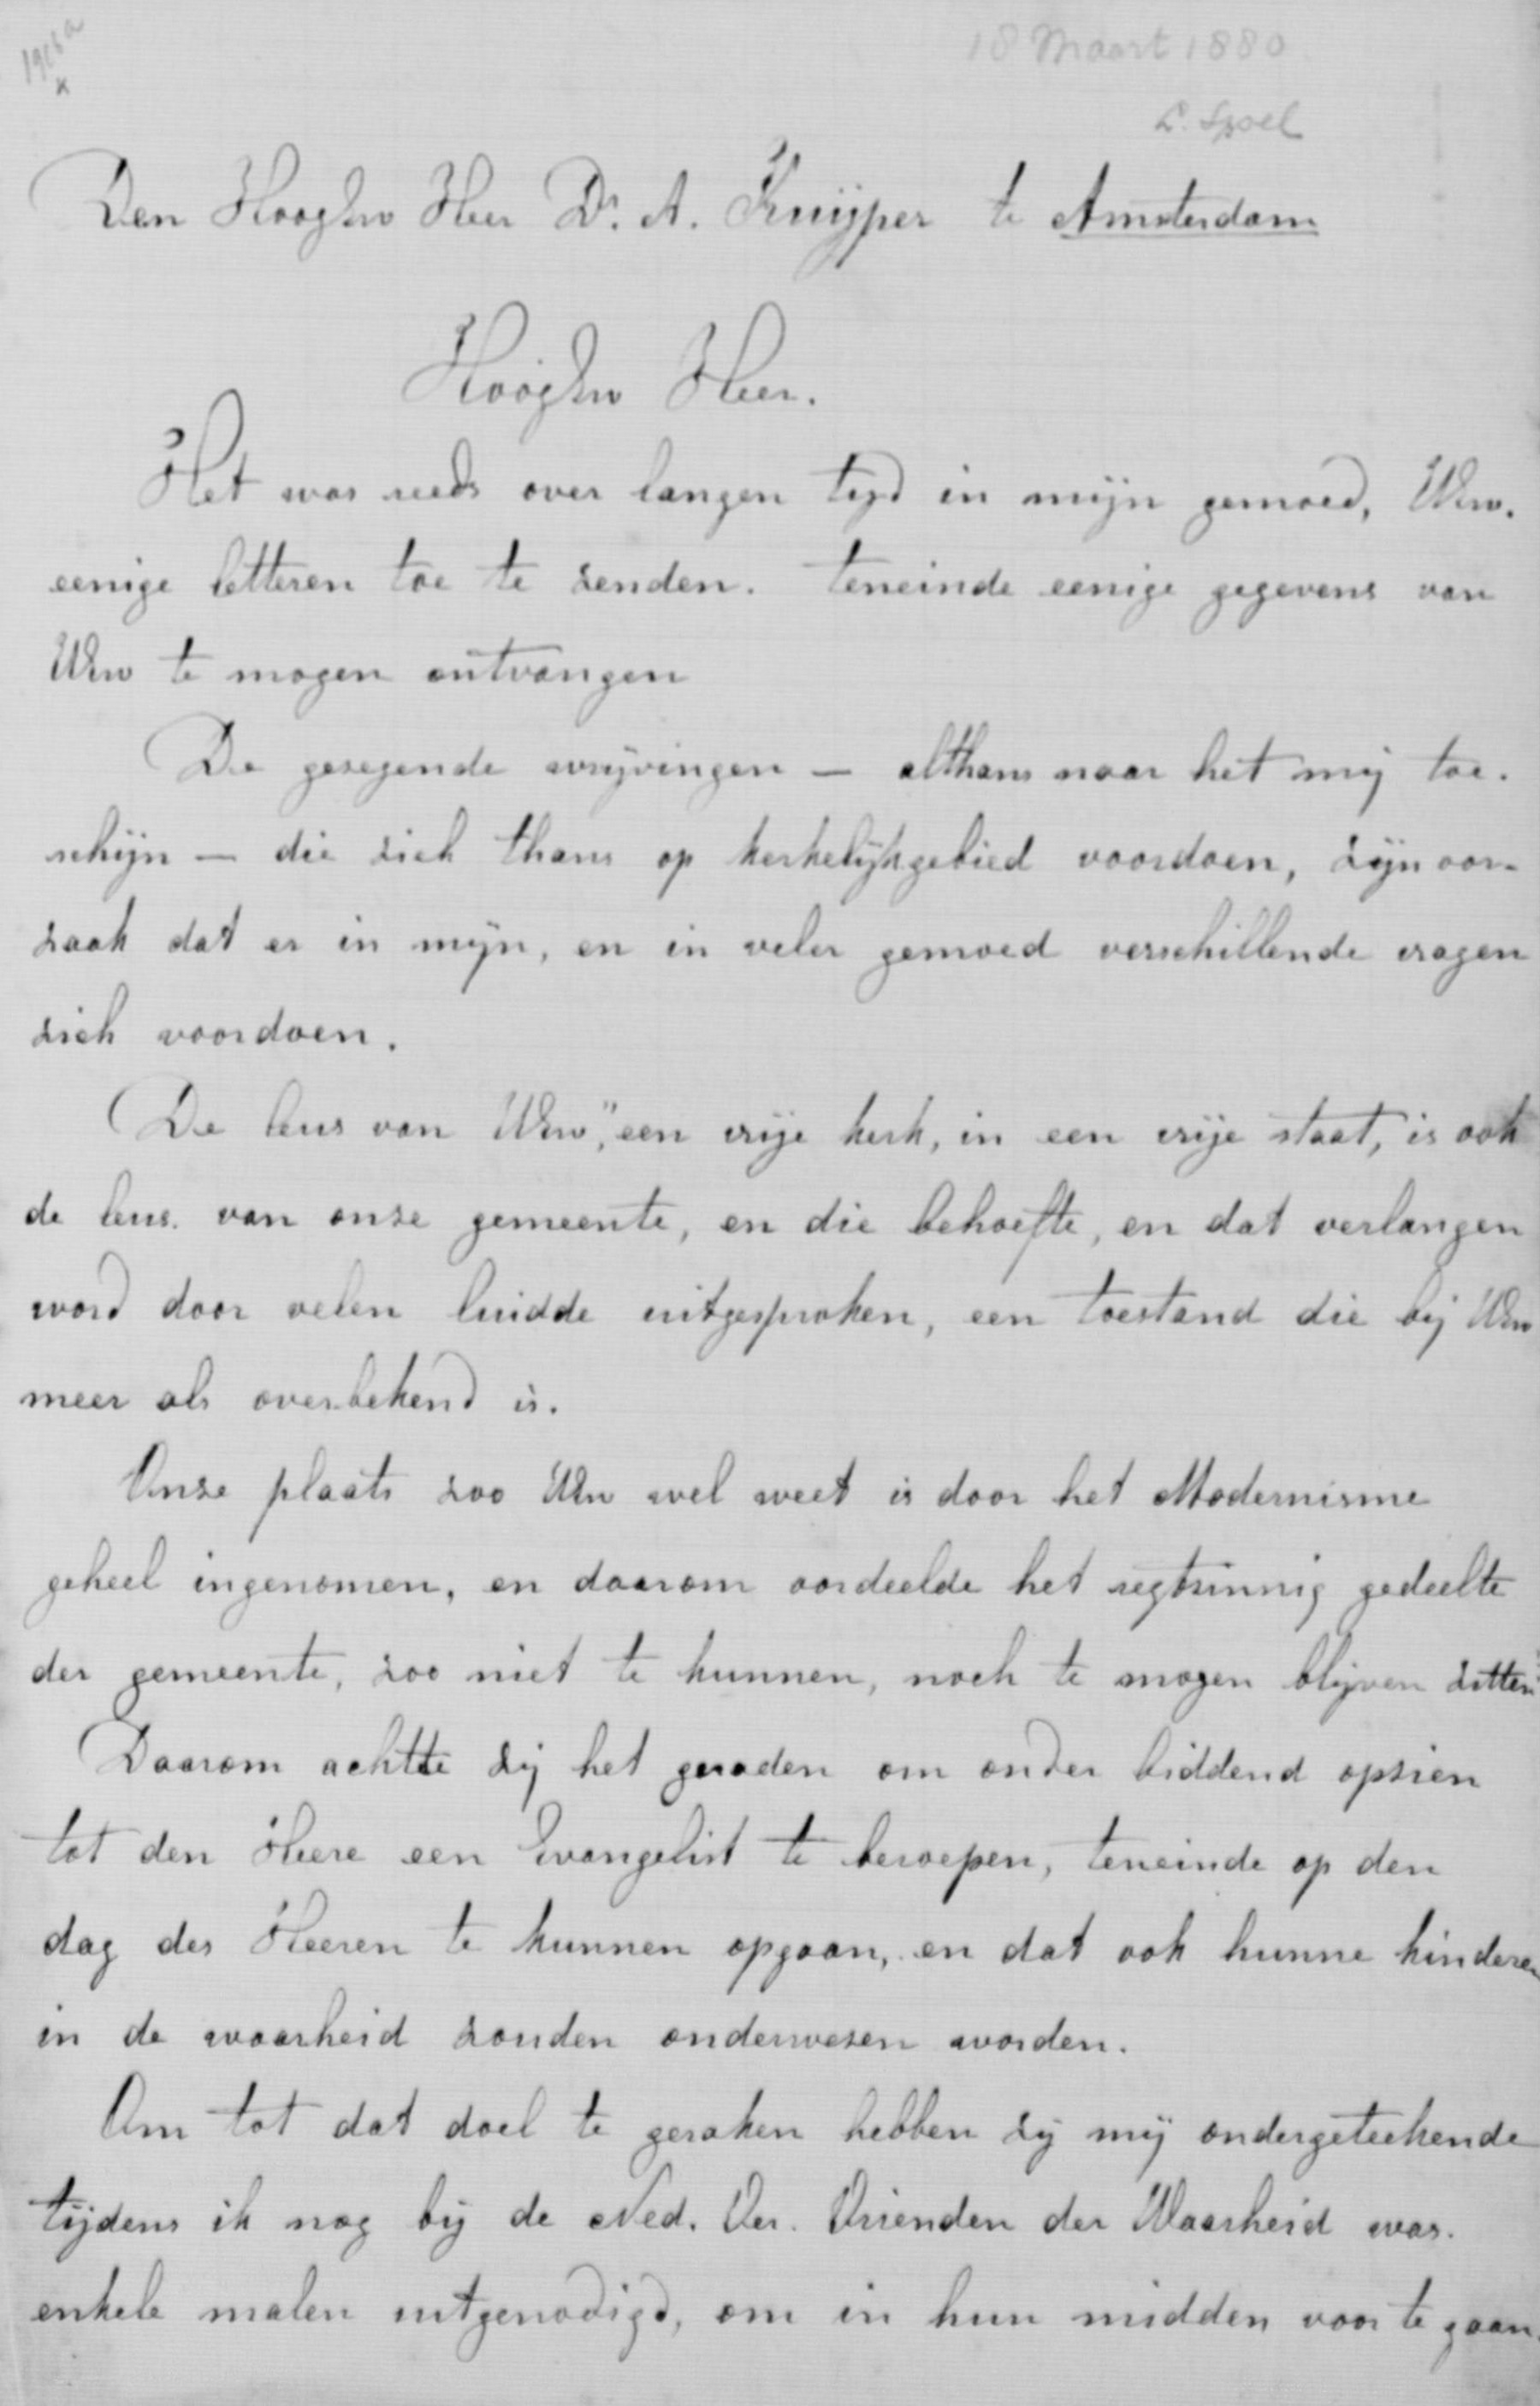 1906a
x
18 Maart 1880
L. Spoel
Den HoogEw Heer Dr. A. Kuijper te Amsterdam
HoogEw Heer.
Het was reeds over langen tijd in mijn gemoed, UEw.
eenige letteren toe te zenden. teneinde eenige gegevens van
UEw te mogen ontvangen
De gezegende wrijvingen — althans naar het mij toe-
schijn — die zich thans op kerkelijkgebied voordoen, zijn oor-
zaak dat er in mijn, en in veler gemoed verschillende vragen
zich voordoen.
De leus van UEw, "een vrije kerk, in een vrije staat, is ook
de leus van onze gemeente, en die behoefte, en dat verlangen
word door velen luidde uitgesproken, een toestand die bij UEw
meer als overbekend is.
Onze plaats zoo UEw wel weet is door het Modernisme
geheel ingenomen, en daarom oordeelde het regtzinnig gedeelte
der gemeente, zoo niet te kunnen, noch te mogen blijven zitten
Daarom achtte zij het geraden om onder biddend opzien
tot den Heere een Evangelist te beroepen, teneinde op den
dag des Heeren te kunnen opgaan, en dat ook hunne kinderen
in de waarheid zouden onderwezen worden.
Om tot dat doel te geraken hebben zij mij ondergeteekende
tijdens ik nog bij de Ned. Ver. Vrienden der Waarheid was.
enkele malen uitgenodigd, om in hun midden voor te gaan.